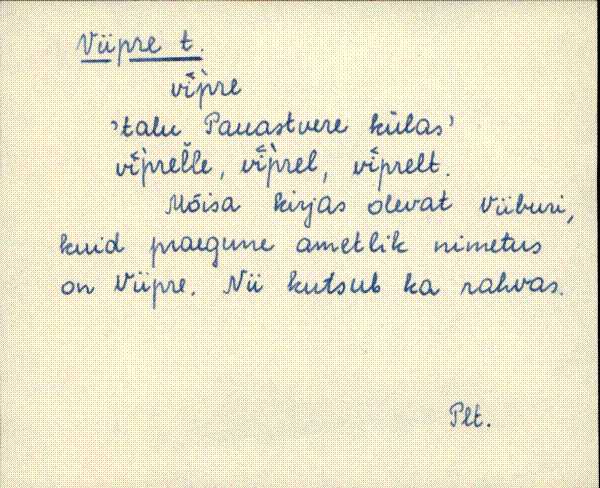 Viipre t.
vī̆p̀re
'talu Pauastvere külas'
vī̆p̀rel̆le, vī̆p̀rel, vī̆prelt.
Mõisa kirjas olevat Viiburi,
kuid praegune ametlik nimetus
on Viipre. Nii kutsub ka rahvas.
Plt.